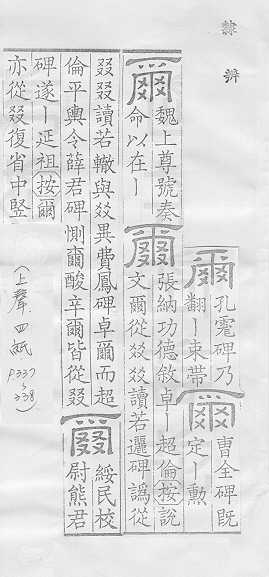 隸辨
爾
孔彪碑乃
翻ー束帶
爾
曹全碑既
定ー勳
爾
魏上尊號奏
命以在ー
爾
張納功德敘卓ー超倫按說
文爾從㸚㸚讀若邐碑譌從
叕叕讀若輟與㸚異費鳳碑卓爾而超
倫平輿令薛君碑惻爾酸辛爾皆從叕
爾
綏民校
尉熊君
碑遂ー延祖按爾
亦從叕復省中竪
(上聲四紙 P337~338)